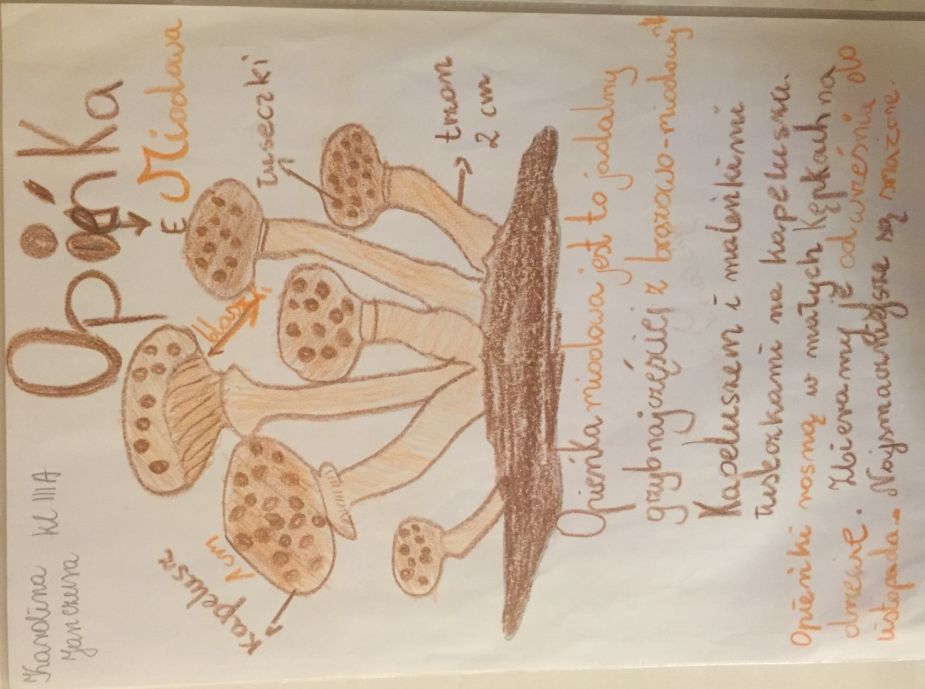 Karolina Kl IIIA
Janczura
Opieńka
Miodowa
Łuseczki
Kapelusz
1cm
trzon
2 cm
Opieńka miodowa jest to jadalny
grzyb najczęściej z brązowo-miodowym
Kapeluszem i maleńkimi
łuskazkami na kapeluszu.
Opieńki rosną w małych kępkach na
drzewie. Zbieramy je od września do
listopada. Najsmaczniejsze są smażone.